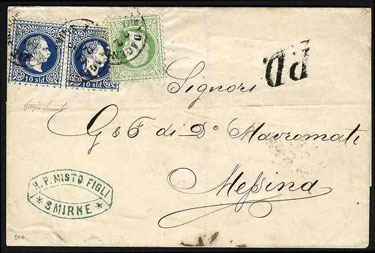 10 sld 10 sld
P.D.
Signori
G & F di D.º Mavromati
Messina
H. P. MISTO FIGLI
* SMIRNE *